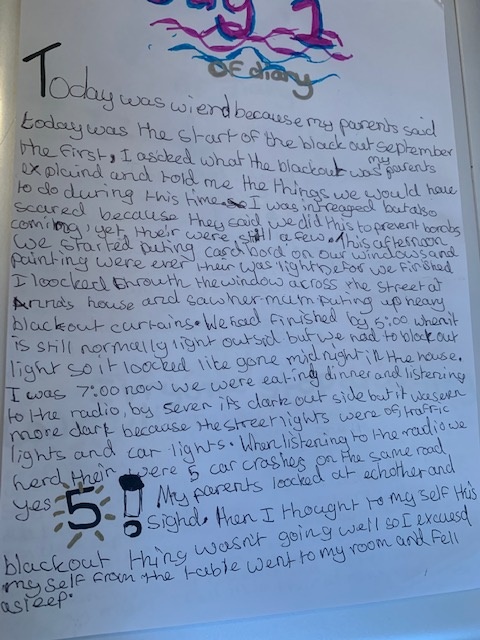 Day 1
OF diary
Today was wierd because my parents said
today was the start of the black out september
the first, I ascked what the blackout was my parents
explaind and told me the things we would have
to do during this time. I was intreaged but also
scared because they said we did this to prevent bombs
coming, yet, their were still a few. This afternoon
we started puting card bord on our windows and
painting were ever their was light, befor we finished
I loocked throuth the window across the street at
Anna's house and saw her mum puting up heavy
blackout curtains. We had finished by 5:00 when it
is still normally light outsid but we had to block out
light so it loocked like gone mid night in the house.
I was 7:00 now we were eating dinner and listening
to the radio, by seven it's dark out side but it was even
more dark because the streetlights were of traffic
lights and car lights. When listening to the radio we
herd their were 5 car crashes on the same road
yes 5! My parents loocked at echother and
sighd. then I thought to my self this
blackout thing wasn't going well so I excused
my self from the table went to my room and fell
asleep.